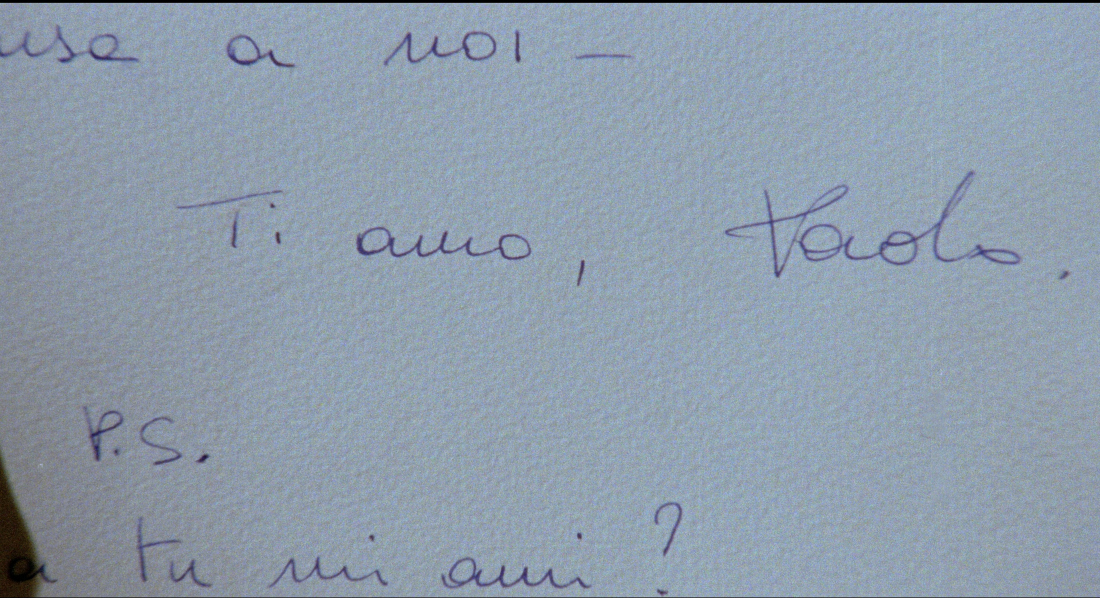 a noi –
Ti amo, Paolo.
P.S.
tu mi ami?